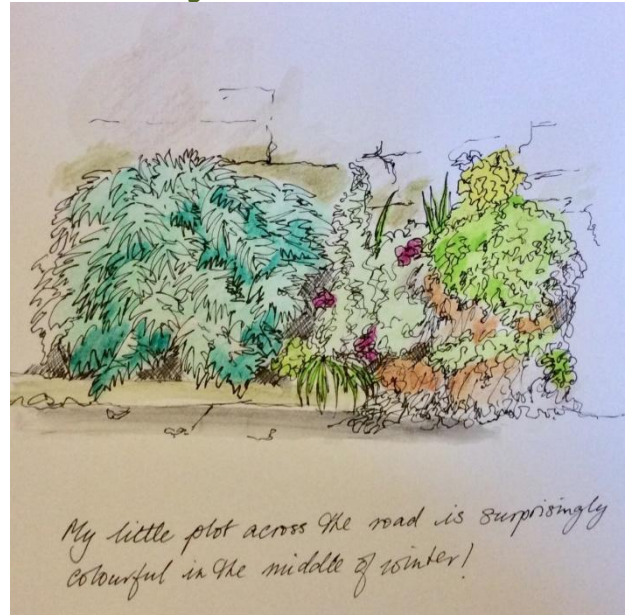 My little plot across the road is surprisingly
colourful in the middle of winter!